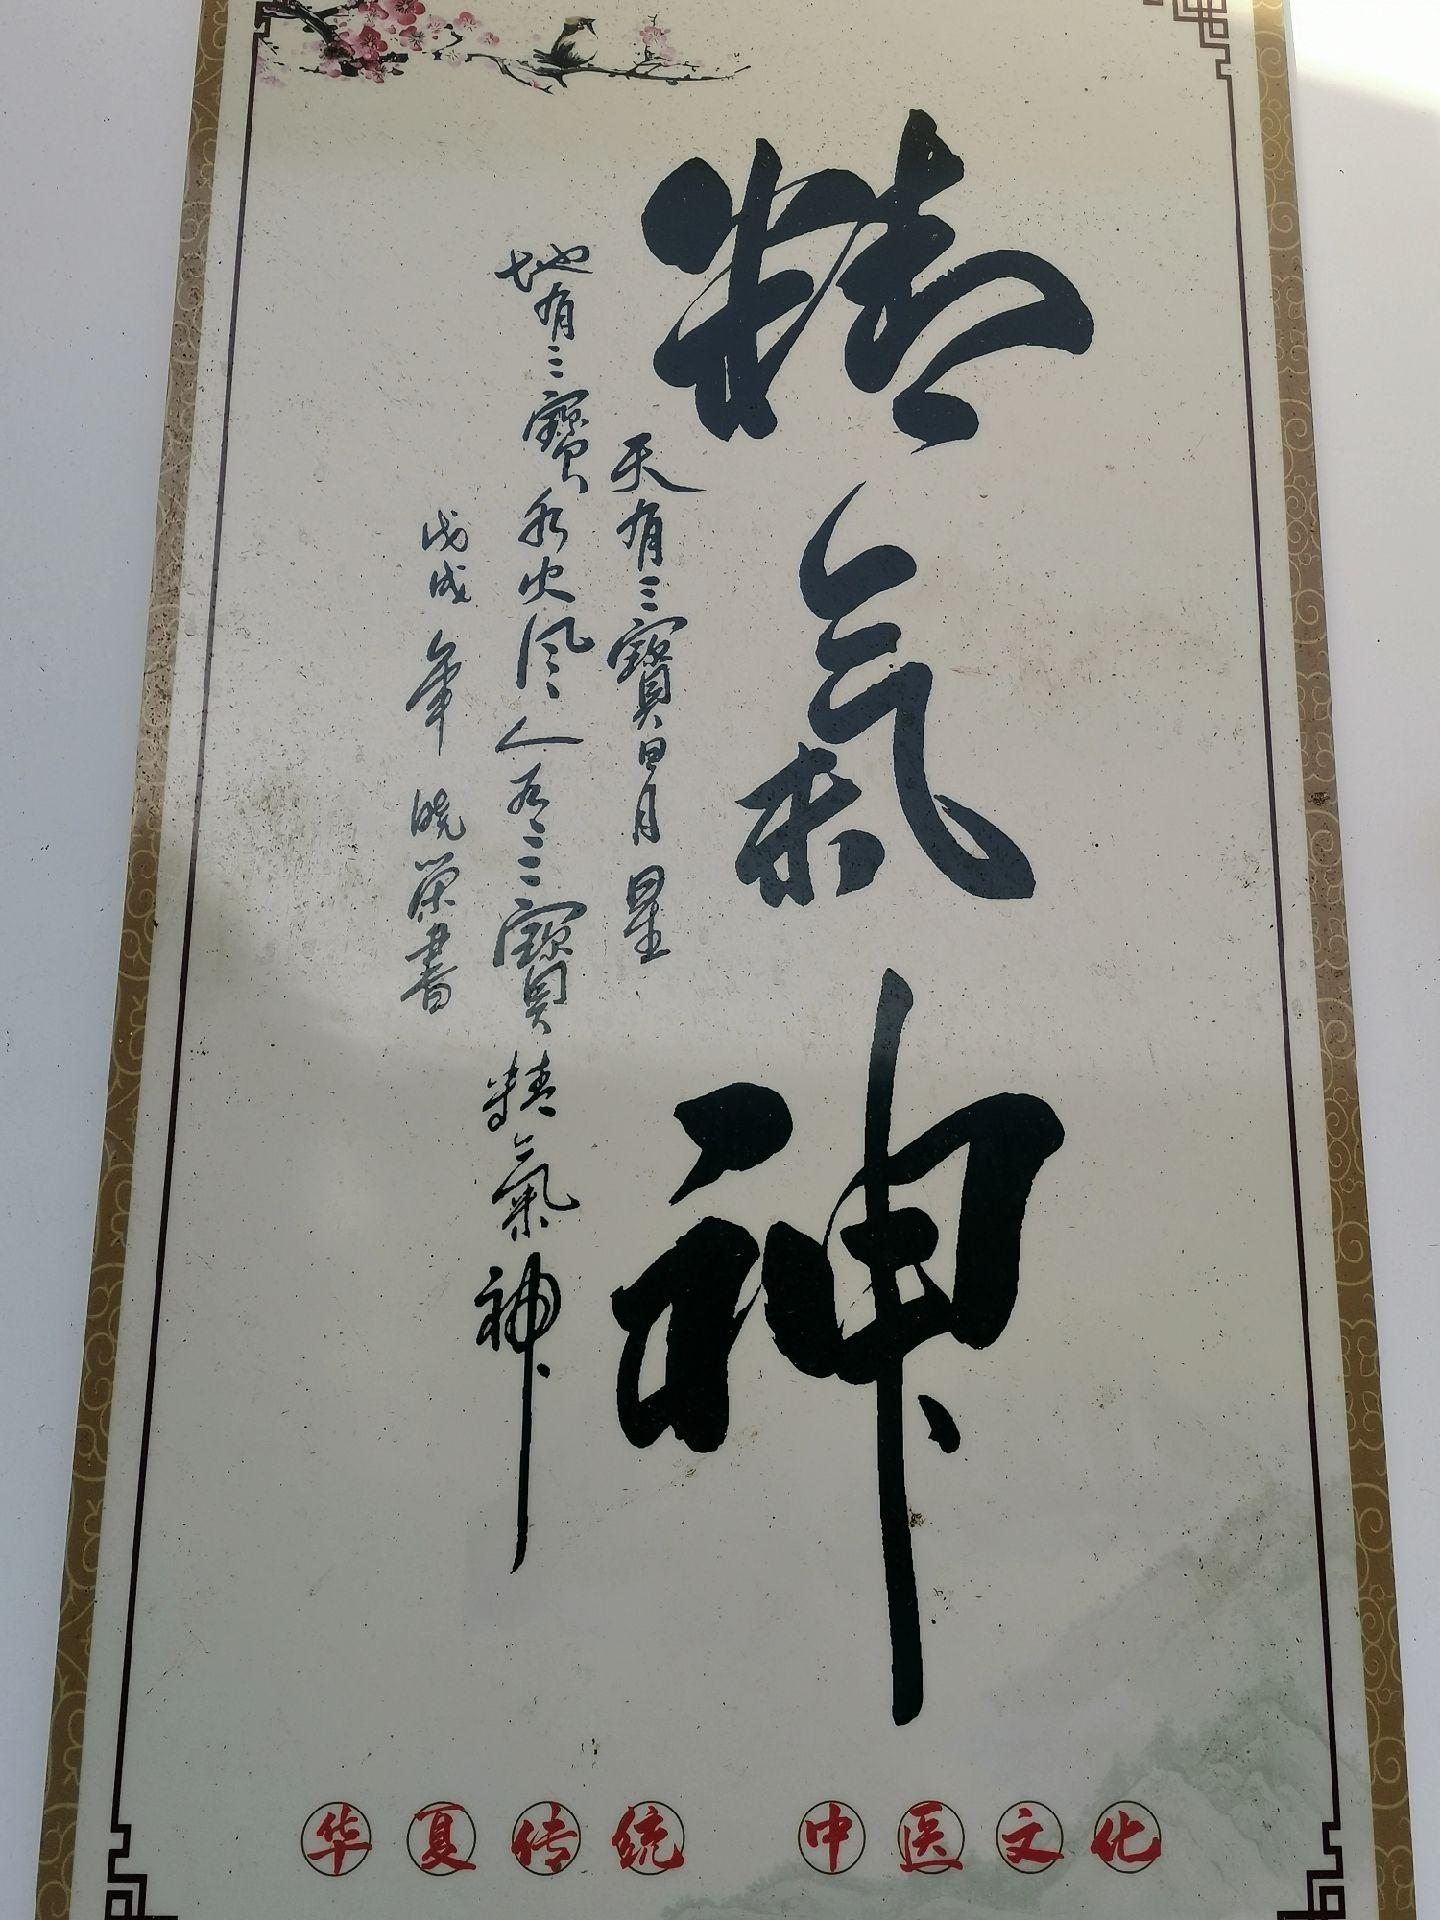 精氣神
天有三寶日月星
地有三寶水火风人有三寶精氣神
戊戌年 晓荣書
华夏传统 中医文化